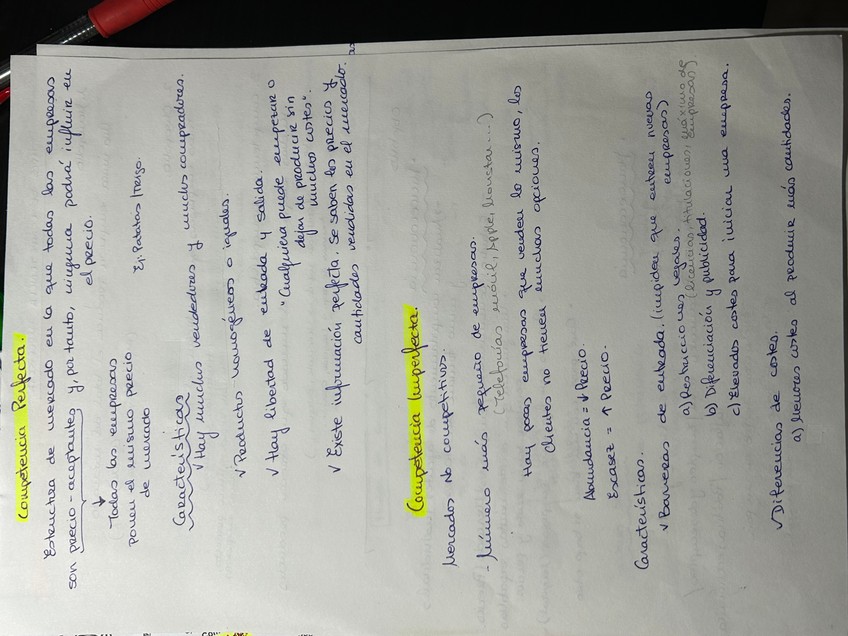 Competencia Perfecta.
Estructura de mercado en la que todas las empresas
son precio-aceptantes y, por tanto, ninguna podrá influir en
el precio.
Todas las empresas
ponen el mismo precio
de mercado
Ej. Patatas/Trigo.
Características
✓ Hay muchos vendedores y muchos compradores.
✓ Productos homogéneos o iguales.
✓ Hay libertad de entrada y salida.
"Cualquiera puede empezar o
dejar de producir sin
muchos costes".
✓ Existe información perfecta. Se saben los precios y
cantidades vendidas en el mercado.
Competencia Imperfecta.
Mercados No competitivos.
- Número más pequeño de empresas.
(Telefonías móvil, Apple, Movistar...)
Hay pocas empresas que venden lo mismo, los
clientes no tienen muchas opciones.
Abundancia = ↓ Precio.
Escasez = ↑ Precio.
Características.
✓ Barreras de entrada. (impiden que entren nuevas
empresas)
a) Restricciones legales.
(licencias, titulaciones, máximo de
empresas)
b) Diferenciación y publicidad.
c) Elevados costes para iniciar una empresa.
✓ Diferencias de costes.
a) Menores costes al producir más cantidades.